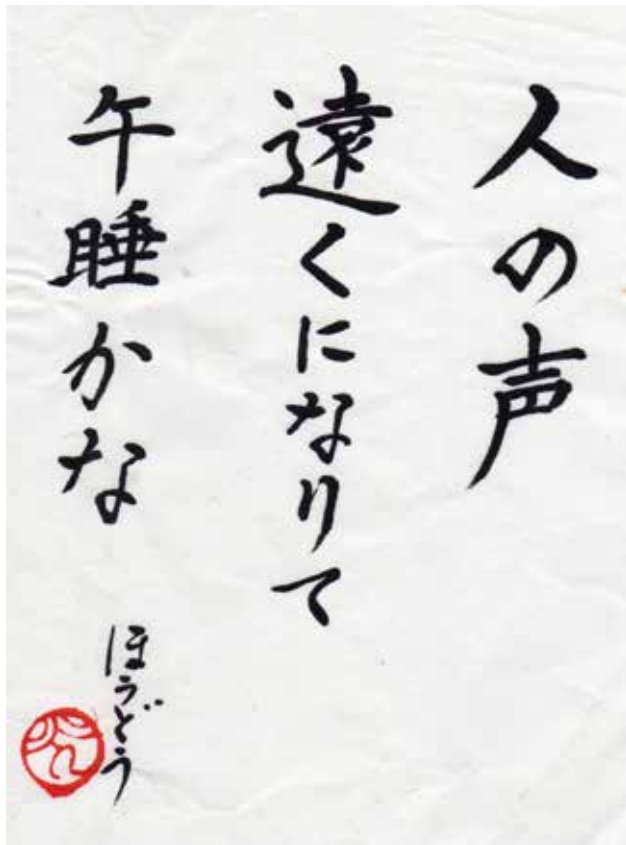 人の声
遠くになりて
午睡かな
ほうどう